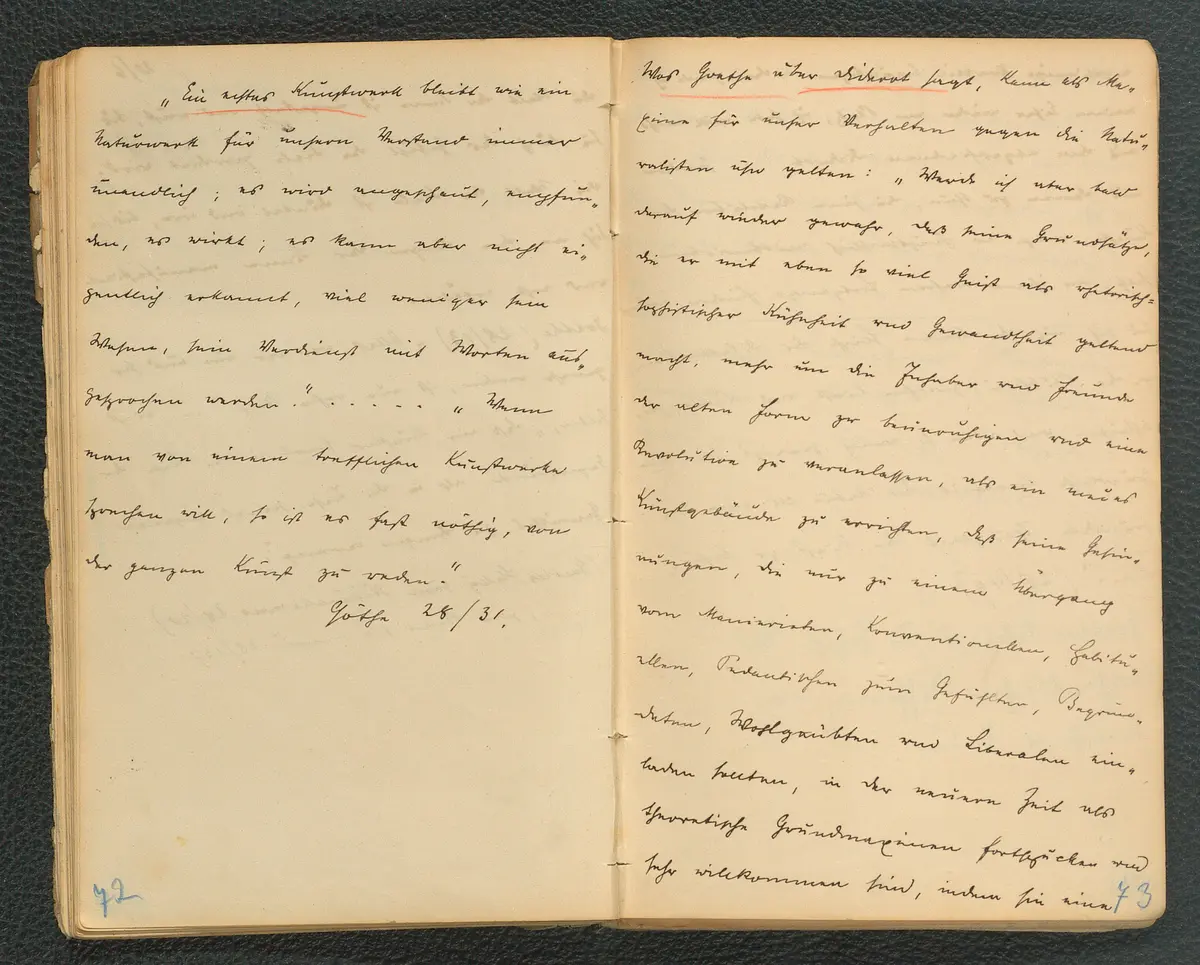 „Ein echtes Kunstwerk bleibt wie ein
Naturwerk für unsern Verstand immer
unendlich; es wird angeschaut, empfun„
den, es wirkt; es kann aber nicht ei„
gentlich erkannt, viel weniger sein
Wesen, sein Verdienst mit Worten aus„
gesprochen werden.“ . . . . . „Wenn
man von einem trefflichen Kunstwerke
sprechen will, so ist es fast nöthig, von
der ganzen Kunst zu reden.“
Göthe 28/31.
72
Was Goethe über Diderot sagt, kann als Ma„
xime für unser Verhalten gegen die Natu„
ralisten usw gelten: „Werde ich aber bald
darauf wieder gewahr, daß seine Grundsätze,
die er mit eben so viel Geist als rhetorisch=
sophistischer Kühnheit und Gewandtheit geltend
macht, mehr um die Inhaber und Freunde
der alten Form zu beunruhigen und eine
Revolution zu veranlassen, als ein neues
Kunstgebäude zu errichten, daß seine Gesin„
nungen, die nur zu einem Übergang
vom Manierirten, Konventionellen, Habitu„
ellen, Pedantischen zum Gefühlten, Begrün„
deten, Wohlgeübten und Liberalen ein„
laden sollten, in der neuern Zeit als
theoretische Grundmaximen fortspucken und
sehr willkommen sind, indem sie eine
73